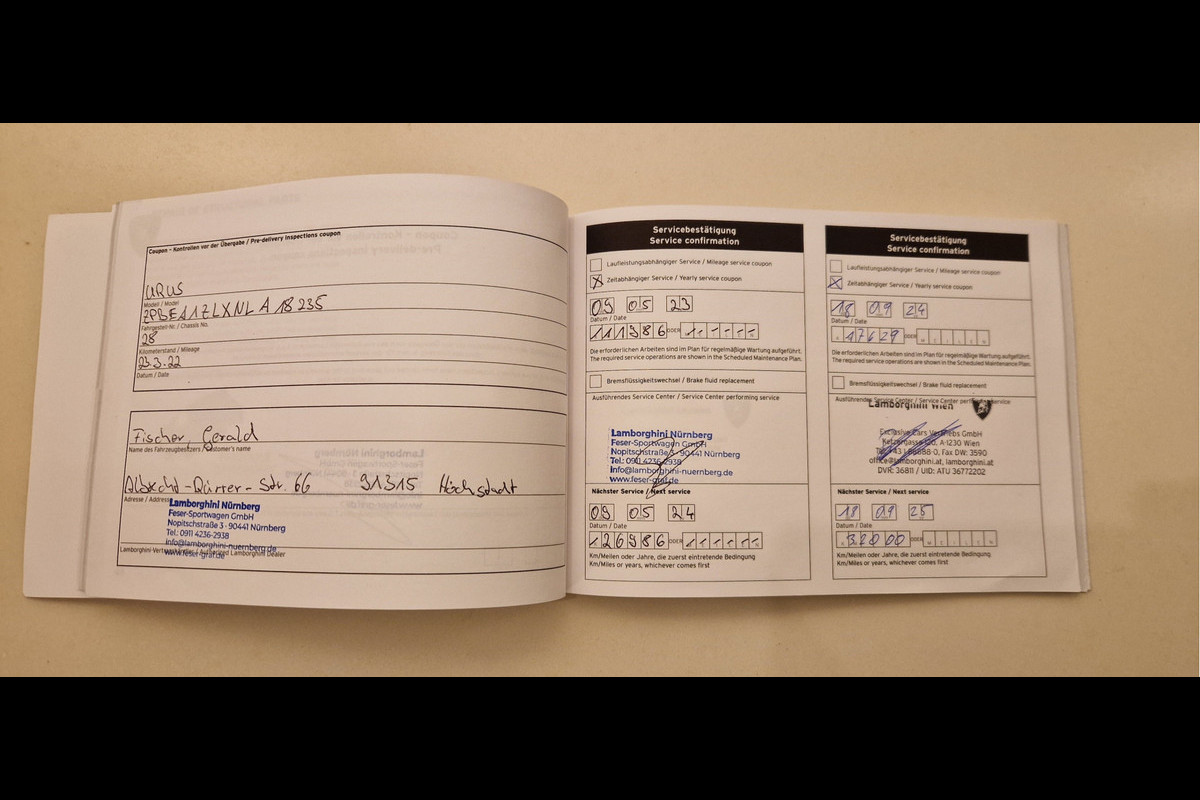 Coupon - Kontrollen vor der Übergabe / Pre-delivery inspections coupon
URUS
Modell / Model
ZPBEA1ZLXNLA18235
Fahrgestell-Nr. / Chassis No.
28
Kilometerstand / Mileage
23.3.22
Datum / Date
Fischer, Gerald
Name des Fahrzeugbesitzers / Customer's name
91315 Höchstadt
Adresse / Address
Lamborghini Nürnberg
Feser-Sportwagen GmbH
Nopitschstraße 3 · 90441 Nürnberg
Tel.: 0911 4236-2938
info@lamborghini-nuernberg.de
www.feser-graf.de
Lamborghini-Vertragshändler / Authorized Lamborghini Dealer
Servicebestätigung
Service confirmation
Laufleistungsabhängiger Service / Mileage service coupon
Zeitabhängiger Service / Yearly service coupon
09 05 23
Datum / Date
11986 ODER
Die erforderlichen Arbeiten sind im Plan für regelmäßige Wartung aufgeführt.
The required service operations are shown in the Scheduled Maintenance Plan.
Bremsflüssigkeitswechsel / Brake fluid replacement
Ausführendes Service Center / Service Center performing service
Lamborghini Nürnberg
Feser-Sportwagen GmbH
Nopitschstraße 3 · 90441 Nürnberg
Tel.: 0911 4236-2938
info@lamborghini-nuernberg.de
www.feser-graf.de
Nächster Service / Next service
09 05 24
Datum / Date
26986 ODER
Km/Meilen oder Jahre, die zuerst eintretende Bedingung
Km/Miles or years, whichever comes first
Servicebestätigung
Service confirmation
Laufleistungsabhängiger Service / Mileage service coupon
Zeitabhängiger Service / Yearly service coupon
18 09 24
Datum / Date
17629 ODER MEILEN
Die erforderlichen Arbeiten sind im Plan für regelmäßige Wartung aufgeführt.
The required service operations are shown in the Scheduled Maintenance Plan.
Bremsflüssigkeitswechsel / Brake fluid replacement
Ausführendes Service Center / Service Center performing service
Lamborghini Wien
Exclusive Cars Vertriebs GmbH
A-1230 Wien
Fax DW: 3590
office@lamborghini.at, lamborghini.at
DVR: 36811 / UID: ATU 36772202
Nächster Service / Next service
18 09 25
Datum / Date
32000 ODER MEILEN
Km/Meilen oder Jahre, die zuerst eintretende Bedingung
Km/Miles or years, whichever comes first